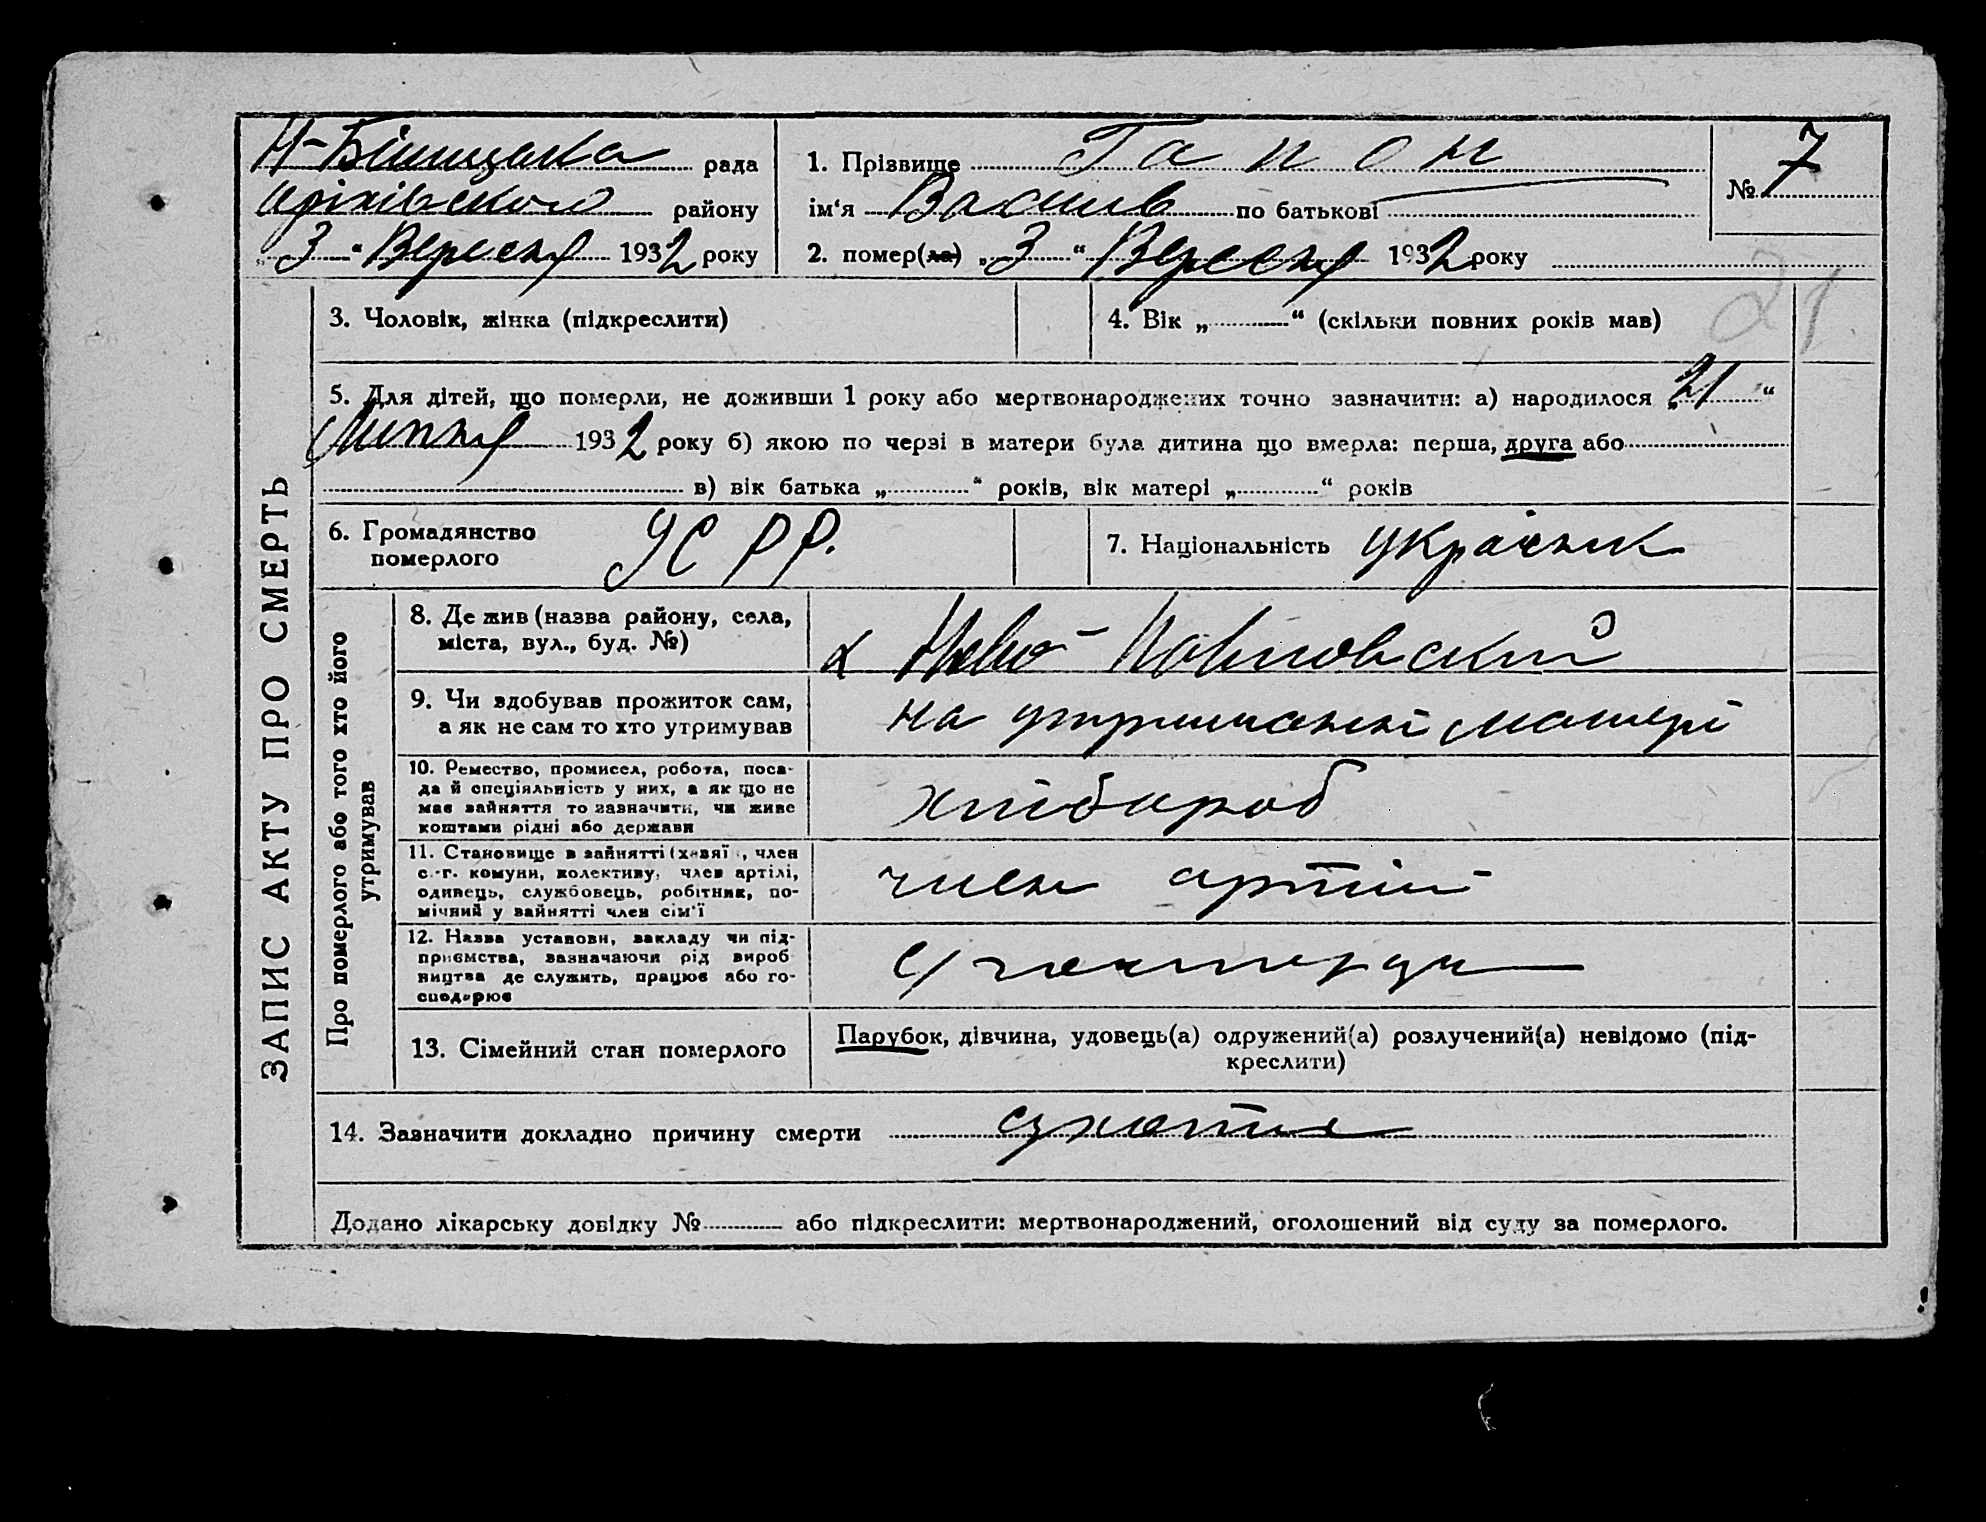 рада
району
„3“ Вересня 1932 року
1. Прізвище Гапон
ім'я Василь по батькові
2. помер(ла) „3“ Вересня 1932 року
№ 7
21
ЗАПИС АКТУ ПРО СМЕРТЬ
3. Чоловік, жінка (підкреслити)
4. Вік „ “ (скільки повних років мав)
5. Для дітей, що померли, не доживши 1 року або мертвонароджених точно зазначити: а) народилося „21“
Липня 1932 року б) якою по черзі в матери була дитина що вмерла: перша, друга або
в) вік батька „ “ років, вік матері „ “ років
6. Громадянство
померлого
УСРР.
7. Національність українк
Про померлого або того хто його
утримував
8. Де жив (назва району, села,
міста, вул., буд. №)
х Ново-
9. Чи здобував прожиток сам,
а як не сам то хто утримував
на утриманні матері
10. Ремество, промисел, робота, поса-
да й спеціяльність у них, а як що не
має зайняття то зазначити, чи живе
коштами рідні або держави
хлібороб
11. Становище в зайнятті (хазяїн, член
с.-г. комуни, колективу, член артілі,
одинець, службовець, робітник, по-
мічний у зайнятті член сім'ї
член артілі
12. Назва установи, закладу чи під-
приємства, зазначаючи рід вироб
ництва де служить, працює або го-
сподарює
13. Сімейний стан померлого
Парубок, дівчина, удовець(а) одружений(а) розлучений(а) невідомо (під-
креслити)
14. Зазначити докладно причину смерти
Додано лікарську довідку № або підкреслити: мертвонароджений, оголошений від суду за померлого.